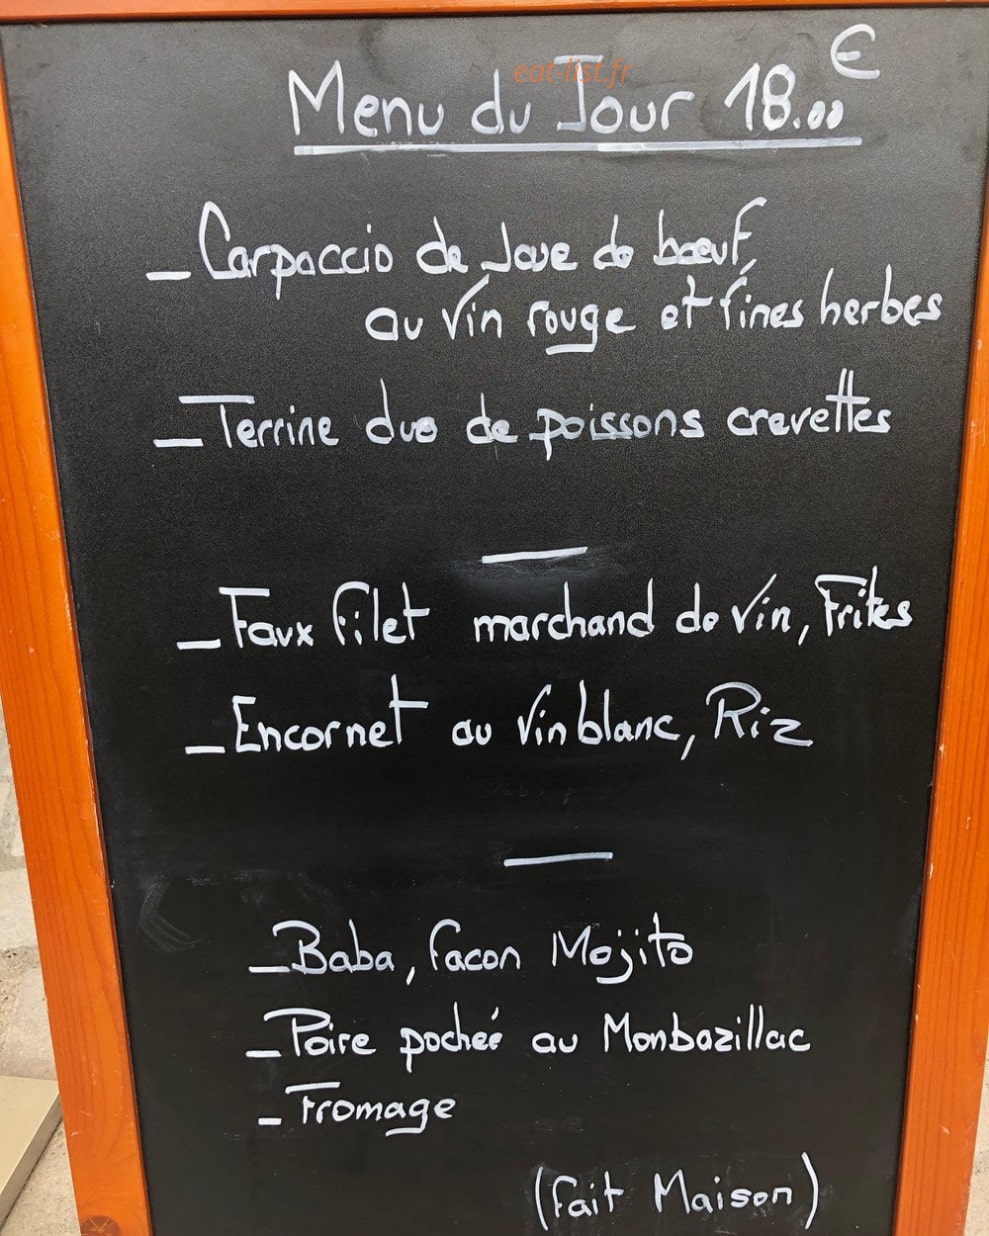 eat-list.fr
Menu du Jour 18.00 €
- Carpaccio de Joue de bœuf,
au Vin rouge et fines herbes
- Terrine duo de poissons crevettes
- Faux filet marchand de Vin, Frites
- Encornet au Vin blanc, Riz
- Baba, facon Mojito
- Poire pocheé au Monbazillac
- Fromage
(fait Maison)